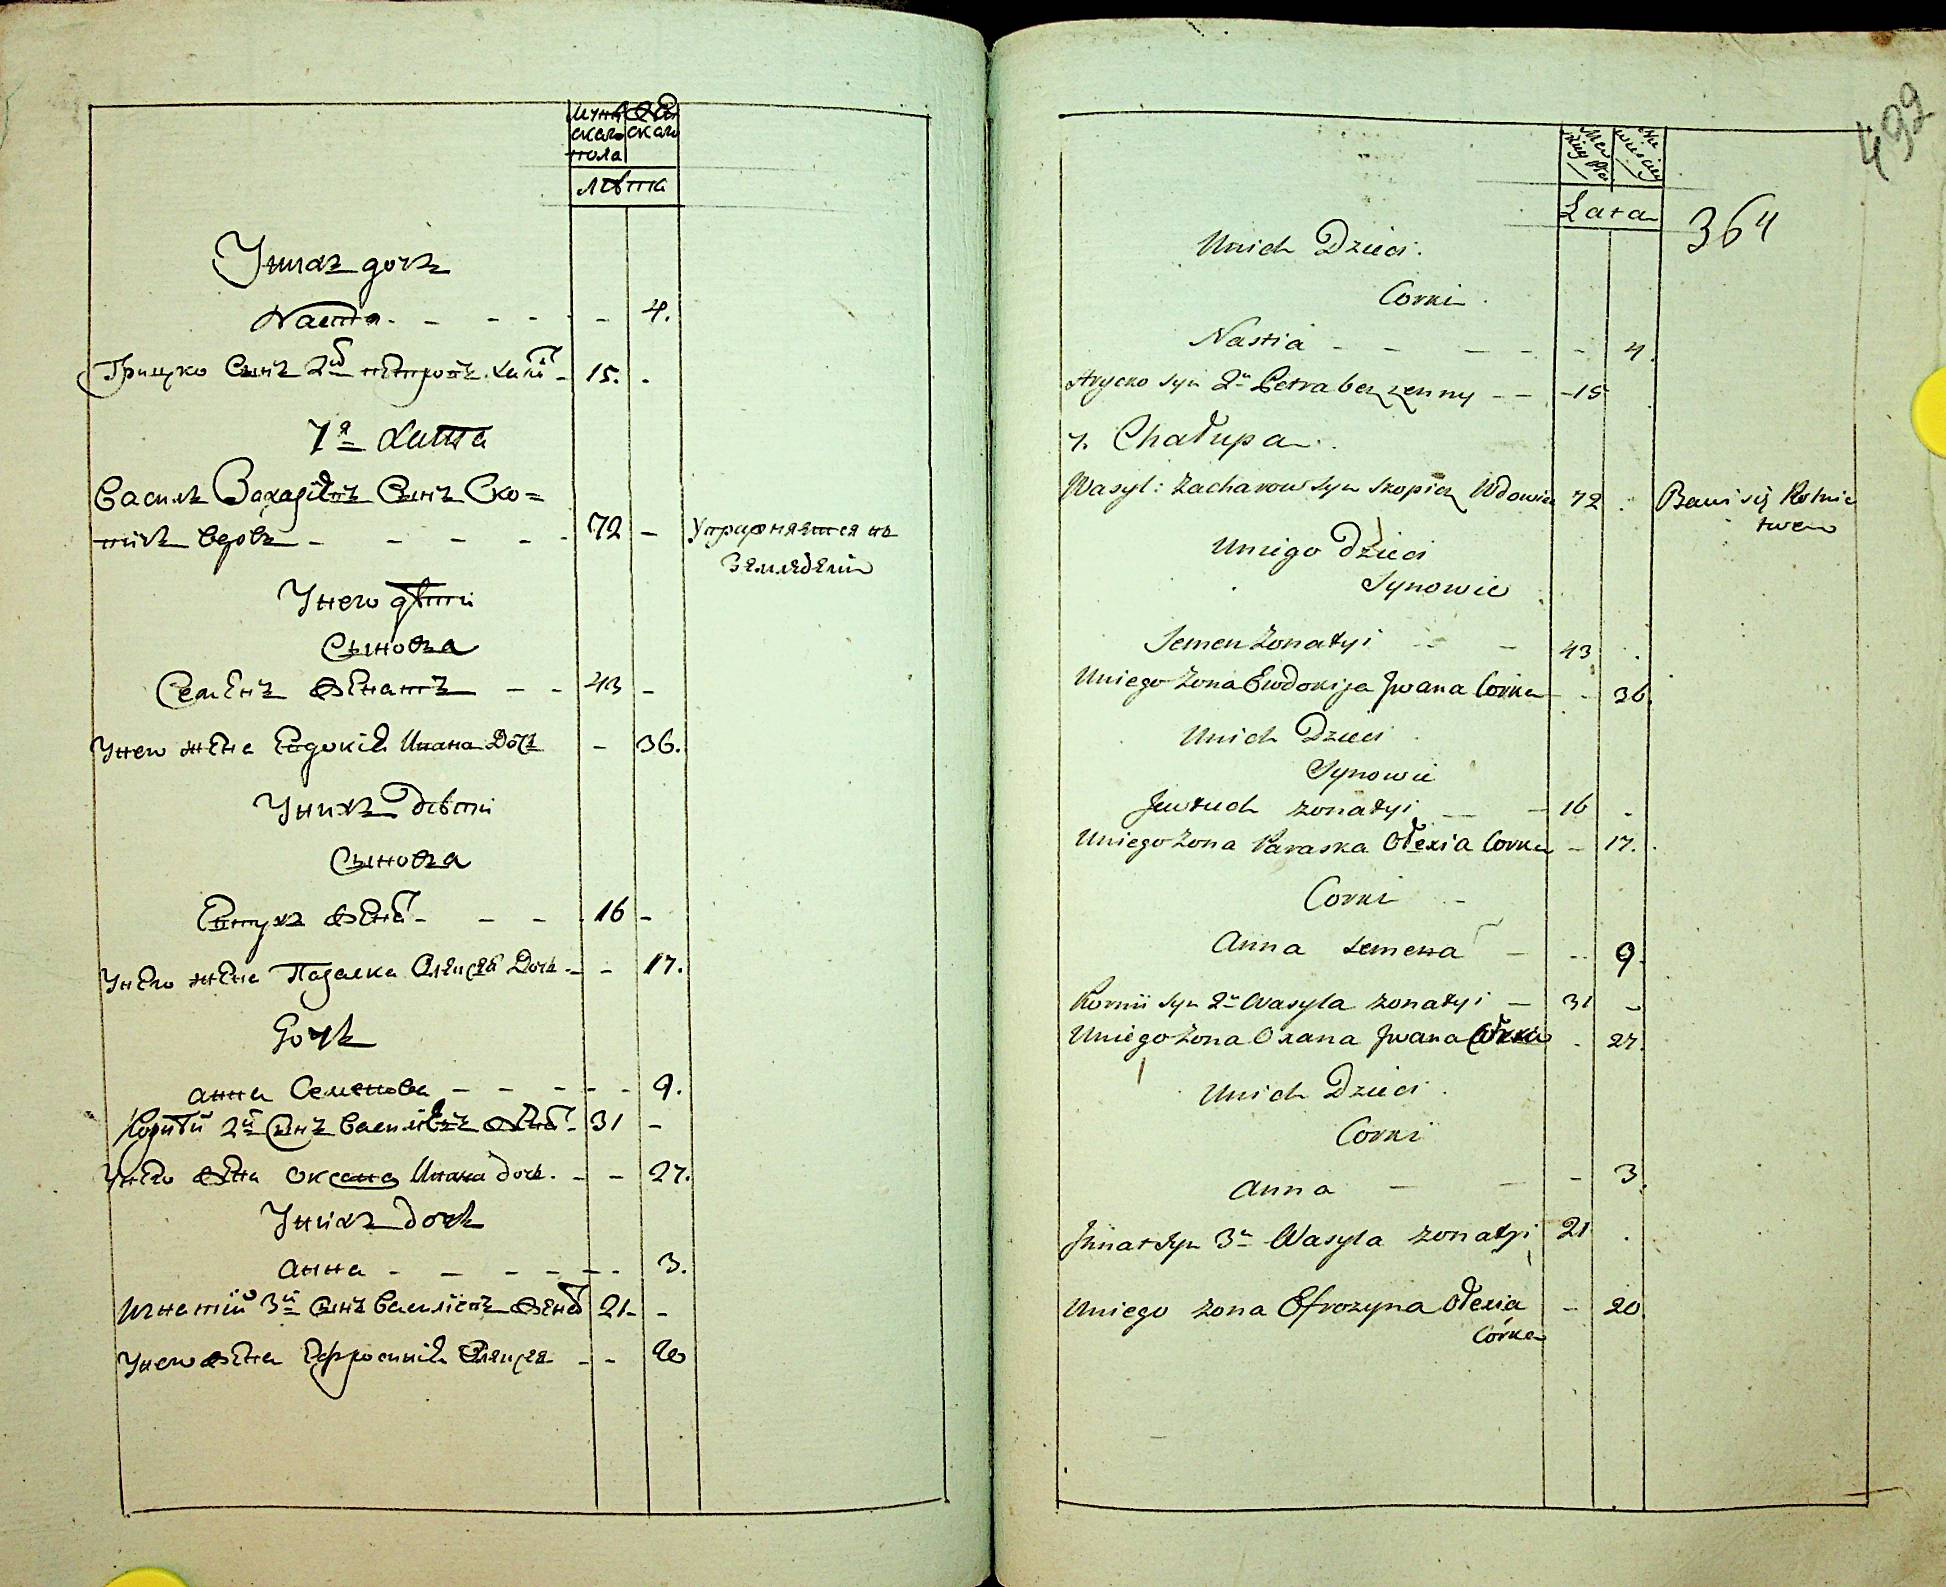 мужескаго пола
женскаго
лѣта
У них дочь
Настя 4.
Грицко Сынъ 2й Петровъ холос 15.
7я хата
Василь Захаріевъ Сынъ Ско=
пичъ вдовъ 72 Упражняется въ
Земледѣліи
У него дѣти
Сыновья
Семенъ женатъ 43
У него жена Евдокія Ивана Дочь 36.
У нихъ дѣти
Сыновья
Евтухъ женат 16
У него жена Параска Олексея Дочь 17.
Дочь
Анна Семенова 9.
Корній 2й Сынъ Васильевъ женат 31
У него жена Оксана Ивана дочь 27.
У нихъ дочь
Анна 3.
Игнатій 3й Сынъ Васильевъ женат 21
У него жена Ефросинія Олексея 20
499
364
Lata
Unich Dzieci.
Corki.
Nastia 4.
Hrycko syn 2й Petra bez zenny 15
7. Chałupa.
Wasyl: Zacharow syn Skopicz Wdowiec 72 Bawi się Rolnic
twem
Uniego Dzieci
Synowie
Semen Zonatyi 43
Uniego Zona Ewdokija Jwana Corka 36.
Unich Dzieci
Synowie
Jewtuch zonatyi 16
Uniego Zona Paraska Ołexia Corka 17.
Corki
Anna Semena 9.
Kornii syn 2й Wasyla zonatyi 31
Uniego Zona Oxana Jwana Corka 27.
Unich Dzieci.
Corki
Anna 3.
Jhnat syn 3й Wasyla zonatyi 21
Uniego zona Efrozyna Ołexia 20.
Córka